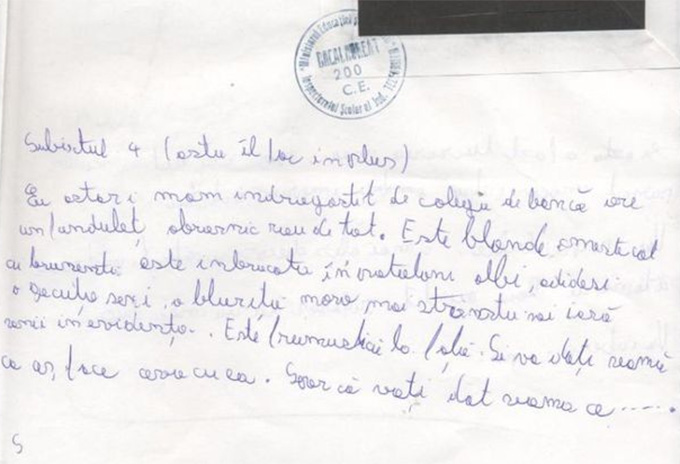 Ministerul Educației
BACALAUREAT
200
C.E.
Inspectoratul Școlar al Jud.
Subiectul 4 (astu îl fac in plus)
Eu astazi mam indragostit de colega de bancă are
un fundulet, obraznic rau de tot. Este blonda amestecat
cu brunenta este inbracata în pataloni albi, adidasi
o gecuța seri, o bluzița mora mai stransta sai iasă
sanii in evidența. Este frumusica la fața. Si va dați seama
ce aș face area cu ea. Sper că vați dat seama ce .....
S